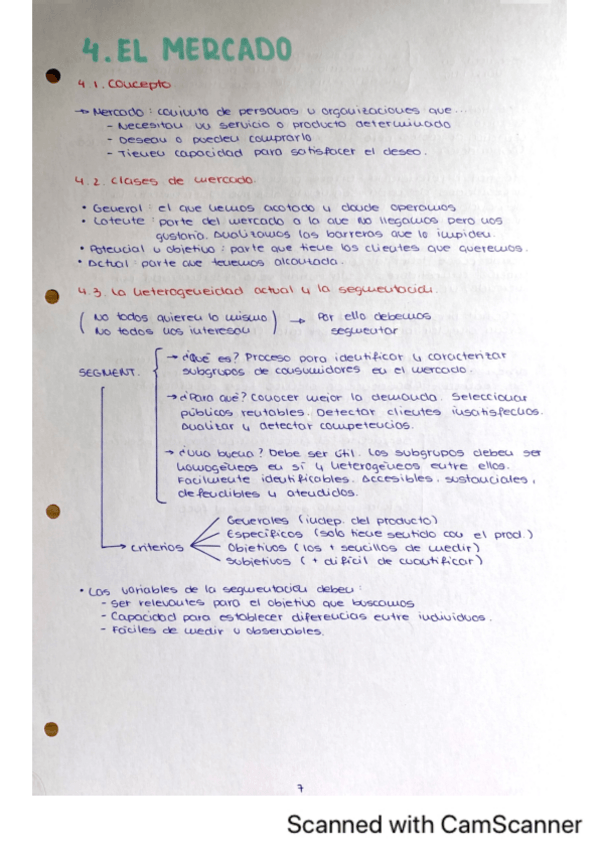 4. EL MERCADO
4.1. Concepto
→ Mercado: conjunto de personas u organizaciones que...
- Necesitan un servicio o producto determinado
- Desean o pueden comprarlo
- Tienen capacidad para satisfacer el deseo.
4.2. Clases de mercado.
• General: el que hemos acotado y donde operamos
• Latente: parte del mercado a la que no llegamos pero nos
gustaría. Analizamos las barreras que lo impiden.
• Potencial u objetivo: parte que tiene los clientes que queremos.
• Actual: parte que tenemos alcanzada.
4.3. La heterogeneidad actual y la segmentación.
( No todos quieren lo mismo ) → Por ello debemos
No todos nos interesan segmentar
→ ¿Qué es? Proceso para identificar y caracterizar
SEGMENT. subgrupos de consumidores en el mercado.
→ ¿Para qué? Conocer mejor la demanda. Seleccionar
públicos rentables. Detectar clientes insatisfechos.
Analizar y detectar competencias.
→ ¿Una buena? Debe ser útil. Los subgrupos deben ser
homogéneos en sí y heterogéneos entre ellos.
Fácilmente identificables. Accesibles, sustanciales,
defendibles y atendidos.
Generales (indep. del producto)
Específicos (solo tiene sentido con el prod.)
→ criterios Objetivos (los + sencillos de medir)
Subjetivos ( + difícil de cuantificar)
• Las variables de la segmentación deben:
- Ser relevantes para el objetivo que buscamos
- Capacidad para establecer diferencias entre individuos.
- Fáciles de medir u observables.
7
Scanned with CamScanner